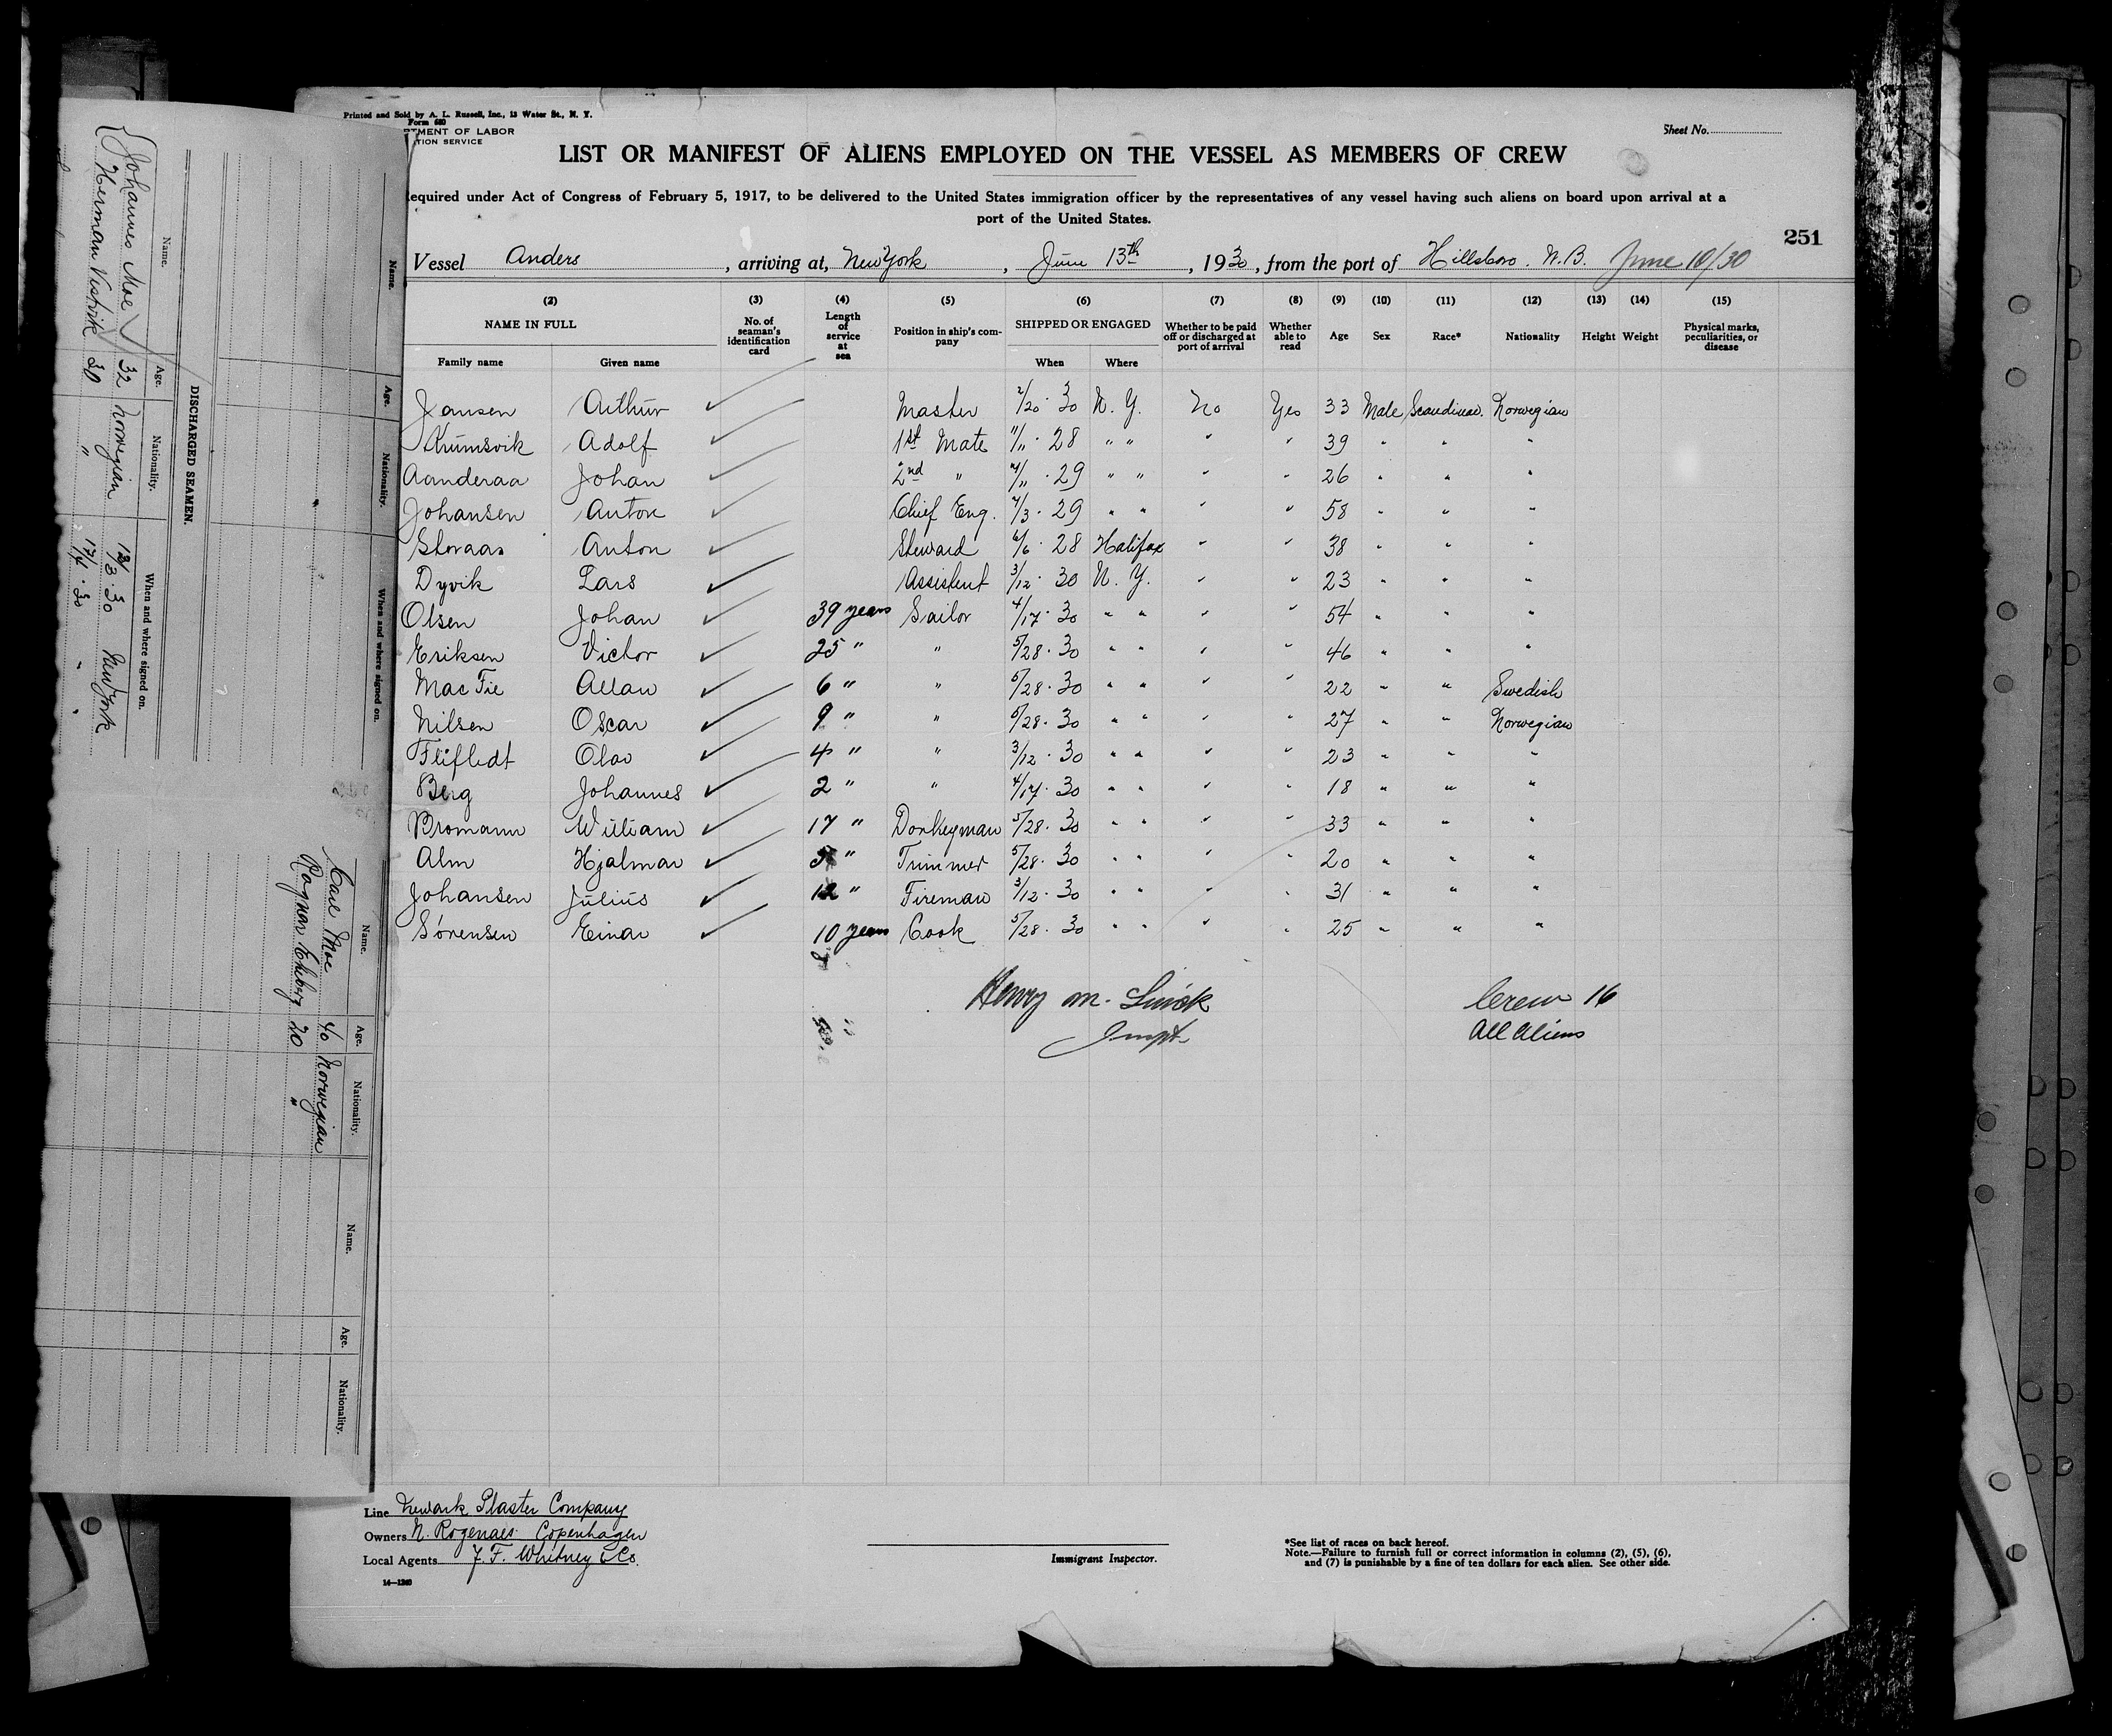 Printed and Sold by A. L. Russell, Inc., 13 Water St., N. Y.
Form 680
RTMENT OF LABOR
TION SERVICE
Sheet No.
LIST OR MANIFEST OF ALIENS EMPLOYED ON THE VESSEL AS MEMBERS OF CREW
equired under Act of Congress of February 5, 1917, to be delivered to the United States immigration officer by the representatives of any vessel having such aliens on board upon arrival at a
port of the United States.
251
Vessel Anders, arriving at, New York, June 13th, 1930, from the port of Hillsboro. N.B. June 10/30
(2) (3) (4) (5) (6) (7) (8) (9) (10) (11) (12) (13) (14) (15)
NAME IN FULL
Family name Given name
No. of seaman's identification card
Length of service at sea
Position in ship's company
SHIPPED OR ENGAGED
When Where
Whether to be paid off or discharged at port of arrival
Whether able to read
Age Sex Race* Nationality Height Weight
Physical marks, peculiarities, or disease
Jansen Arthur ✓ Master 2/20 · 30 N. Y. No Yes 33 Male Scandinav. Norwegian
Krumsvik Adolf ✓ 1st Mate 11/11 · 28 " " " " 39 " " "
Aanderaa Johan ✓ 2nd " · 29 " " " " 26 " " "
Johansen Anton ✓ Chief Eng. 7/3 · 29 " " " " 58 " " "
Storaas Anton ✓ Steward 6/6 · 28 Halifax " " 38 " " "
Dyvik Lars ✓ Assistent 3/12 · 30 N. Y. " " 23 " " "
Olsen Johan ✓ 39 years Sailor 4/17 · 30 " " " " 54 " " "
Eriksen Victor ✓ 25 " " 5/28 · 30 " " " " 46 " " "
Mac Fie Allan ✓ 6 " " 5/28 · 30 " " " " 22 " " Swedish
Nilsen Oscar ✓ 9 " " 5/28 · 30 " " " " 27 " " Norwegian
Olav ✓ 4 " " 3/12 · 30 " " " " 23 " " "
Berg Johannes ✓ 2 " " 4/17 · 30 " " " " 18 " " "
Bromann William ✓ 17 " Donkeyman 5/28 · 30 " " " " 33 " " "
Alm Hjalmar ✓ " Trimmer 5/28 · 30 " " " " 20 " " "
Johansen Julius ✓ 12 " Fireman 3/12 · 30 " " " " 31 " " "
Sørensen Einar ✓ 10 years Cook 5/28 · 30 " " " " 25 " " "
Henry M.
Inspt.
Crew 16
All Aliens
Line Newark Plaster Company
Owners N. Rogenaes Copenhagen
Local Agents F. F. Whitney & Co.
14—1240
Immigrant Inspector.
*See list of races on back hereof.
Note.—Failure to furnish full or correct information in columns (2), (5), (6),
and (7) is punishable by a fine of ten dollars for each alien. See other side.
DISCHARGED SEAMEN.
Name. Age. Nationality. When and where signed on.
Johannes Moe 32 Norwegian 12/3 · 30 New York
Herman 30 " 17/4 · 30 " "
Name. Age. Nationality. When and where signed on.
Name. Age. Nationality. Name. Age. Nationality.
Carl Moe 40 Norwegian
Ragnar 20 "